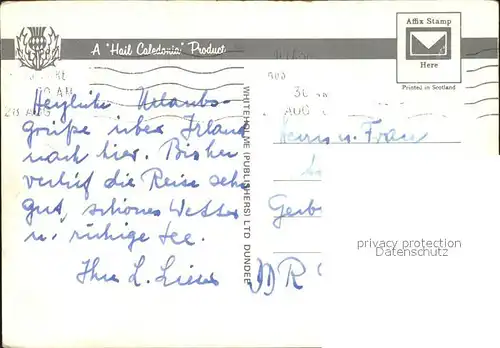 A "Hail Caledonia" Product
Affix Stamp
Here
Printed in Scotland
30
AUG
AUG
Herzliche Urlaubs-
grüße über Irland
nach hier. Bisher
verlief die Reise sehr
gut, schönes Wetter
u. ruhige See.
Ihr L.
WHITEHOLME (PUBLISHERS) LTD. DUNDEE
Herrn u. Frau
privacy protection
Datenschutz